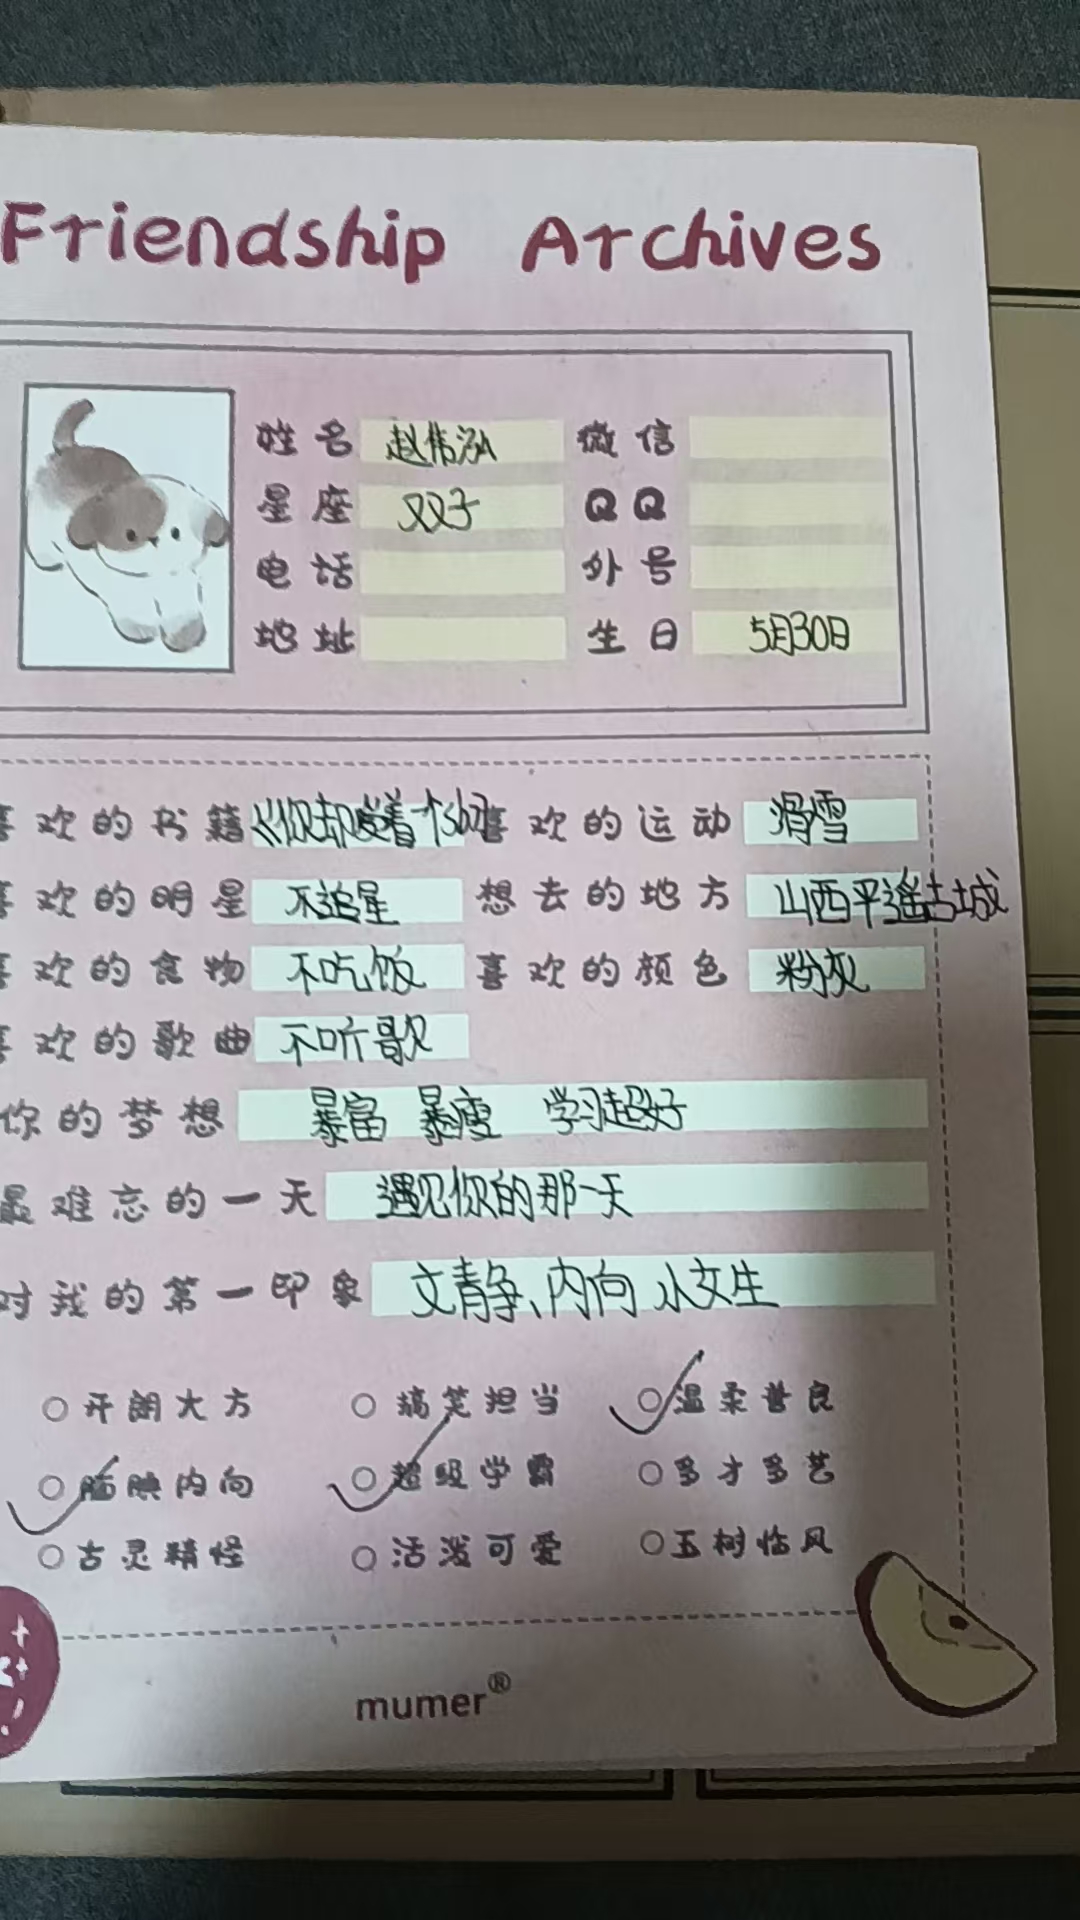 Friendship Archives
姓名 赵伟泓 微信
星座 双子 QQ
电话 外号
地址 生日 5月30日
喜欢的书籍 《你却爱着一个 喜欢的运动 滑雪
喜欢的明星 不追星 想去的地方 山西平遥古城
喜欢的食物 不吃饭 喜欢的颜色 粉灰
喜欢的歌曲 不听歌
你的梦想 暴富 暴瘦 学习超好
最难忘的一天 遇见你的那一天
对我的第一印象 文静、内向 小女生
开朗大方 搞笑担当 温柔善良
腼腆内向 超级学霸 多才多艺
古灵精怪 活泼可爱 玉树临风
mumer®